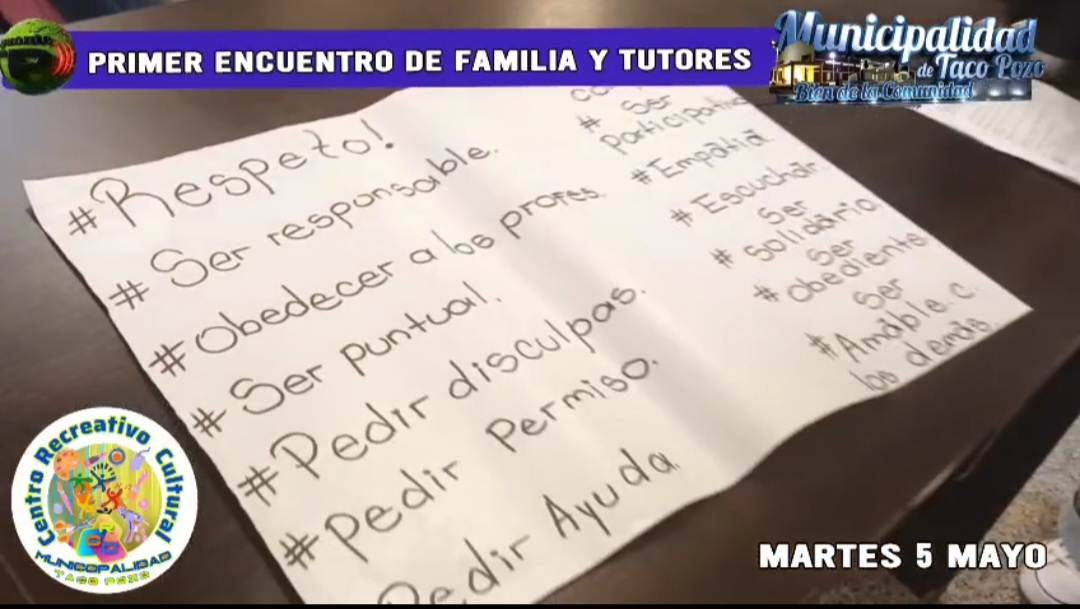 PRIMER ENCUENTRO DE FAMILIA Y TUTORES
Municipalidad
de Taco Pozo
Bien de la Comunidad
#Respeto!
# Ser responsable.
#obedecer a los profes.
# Ser puntual.
#Pedir disculpas.
#pedir Permiso.
Pedir Ayuda.
# Ser
participativo
#Empatia
# Escuchar
Ser
# solidario.
Ser
# obediente
Ser
#Amable.c.
los demás.
Centro Recreativo Cultural
MUNICOPALIDAD
TACO POZO
MARTES 5 MAYO